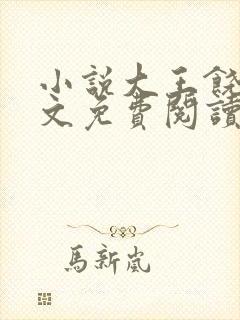 小説大王饒
文免費閱讀
馬新嵐